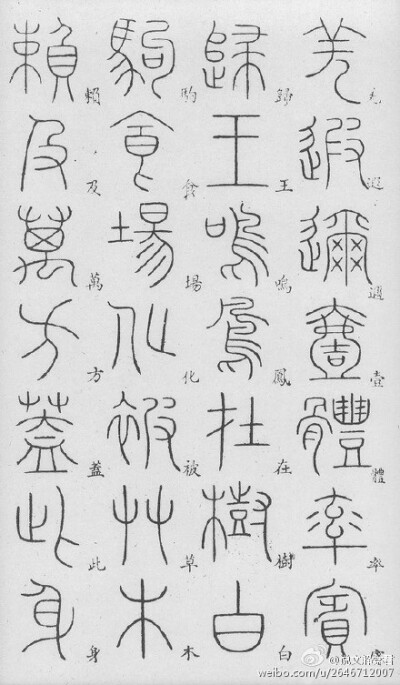 羌遐邇壹體率賓
歸王鳴鳳在樹白
駒食場化被草木
賴及萬方蓋此身
weibo.com/u/2646712007